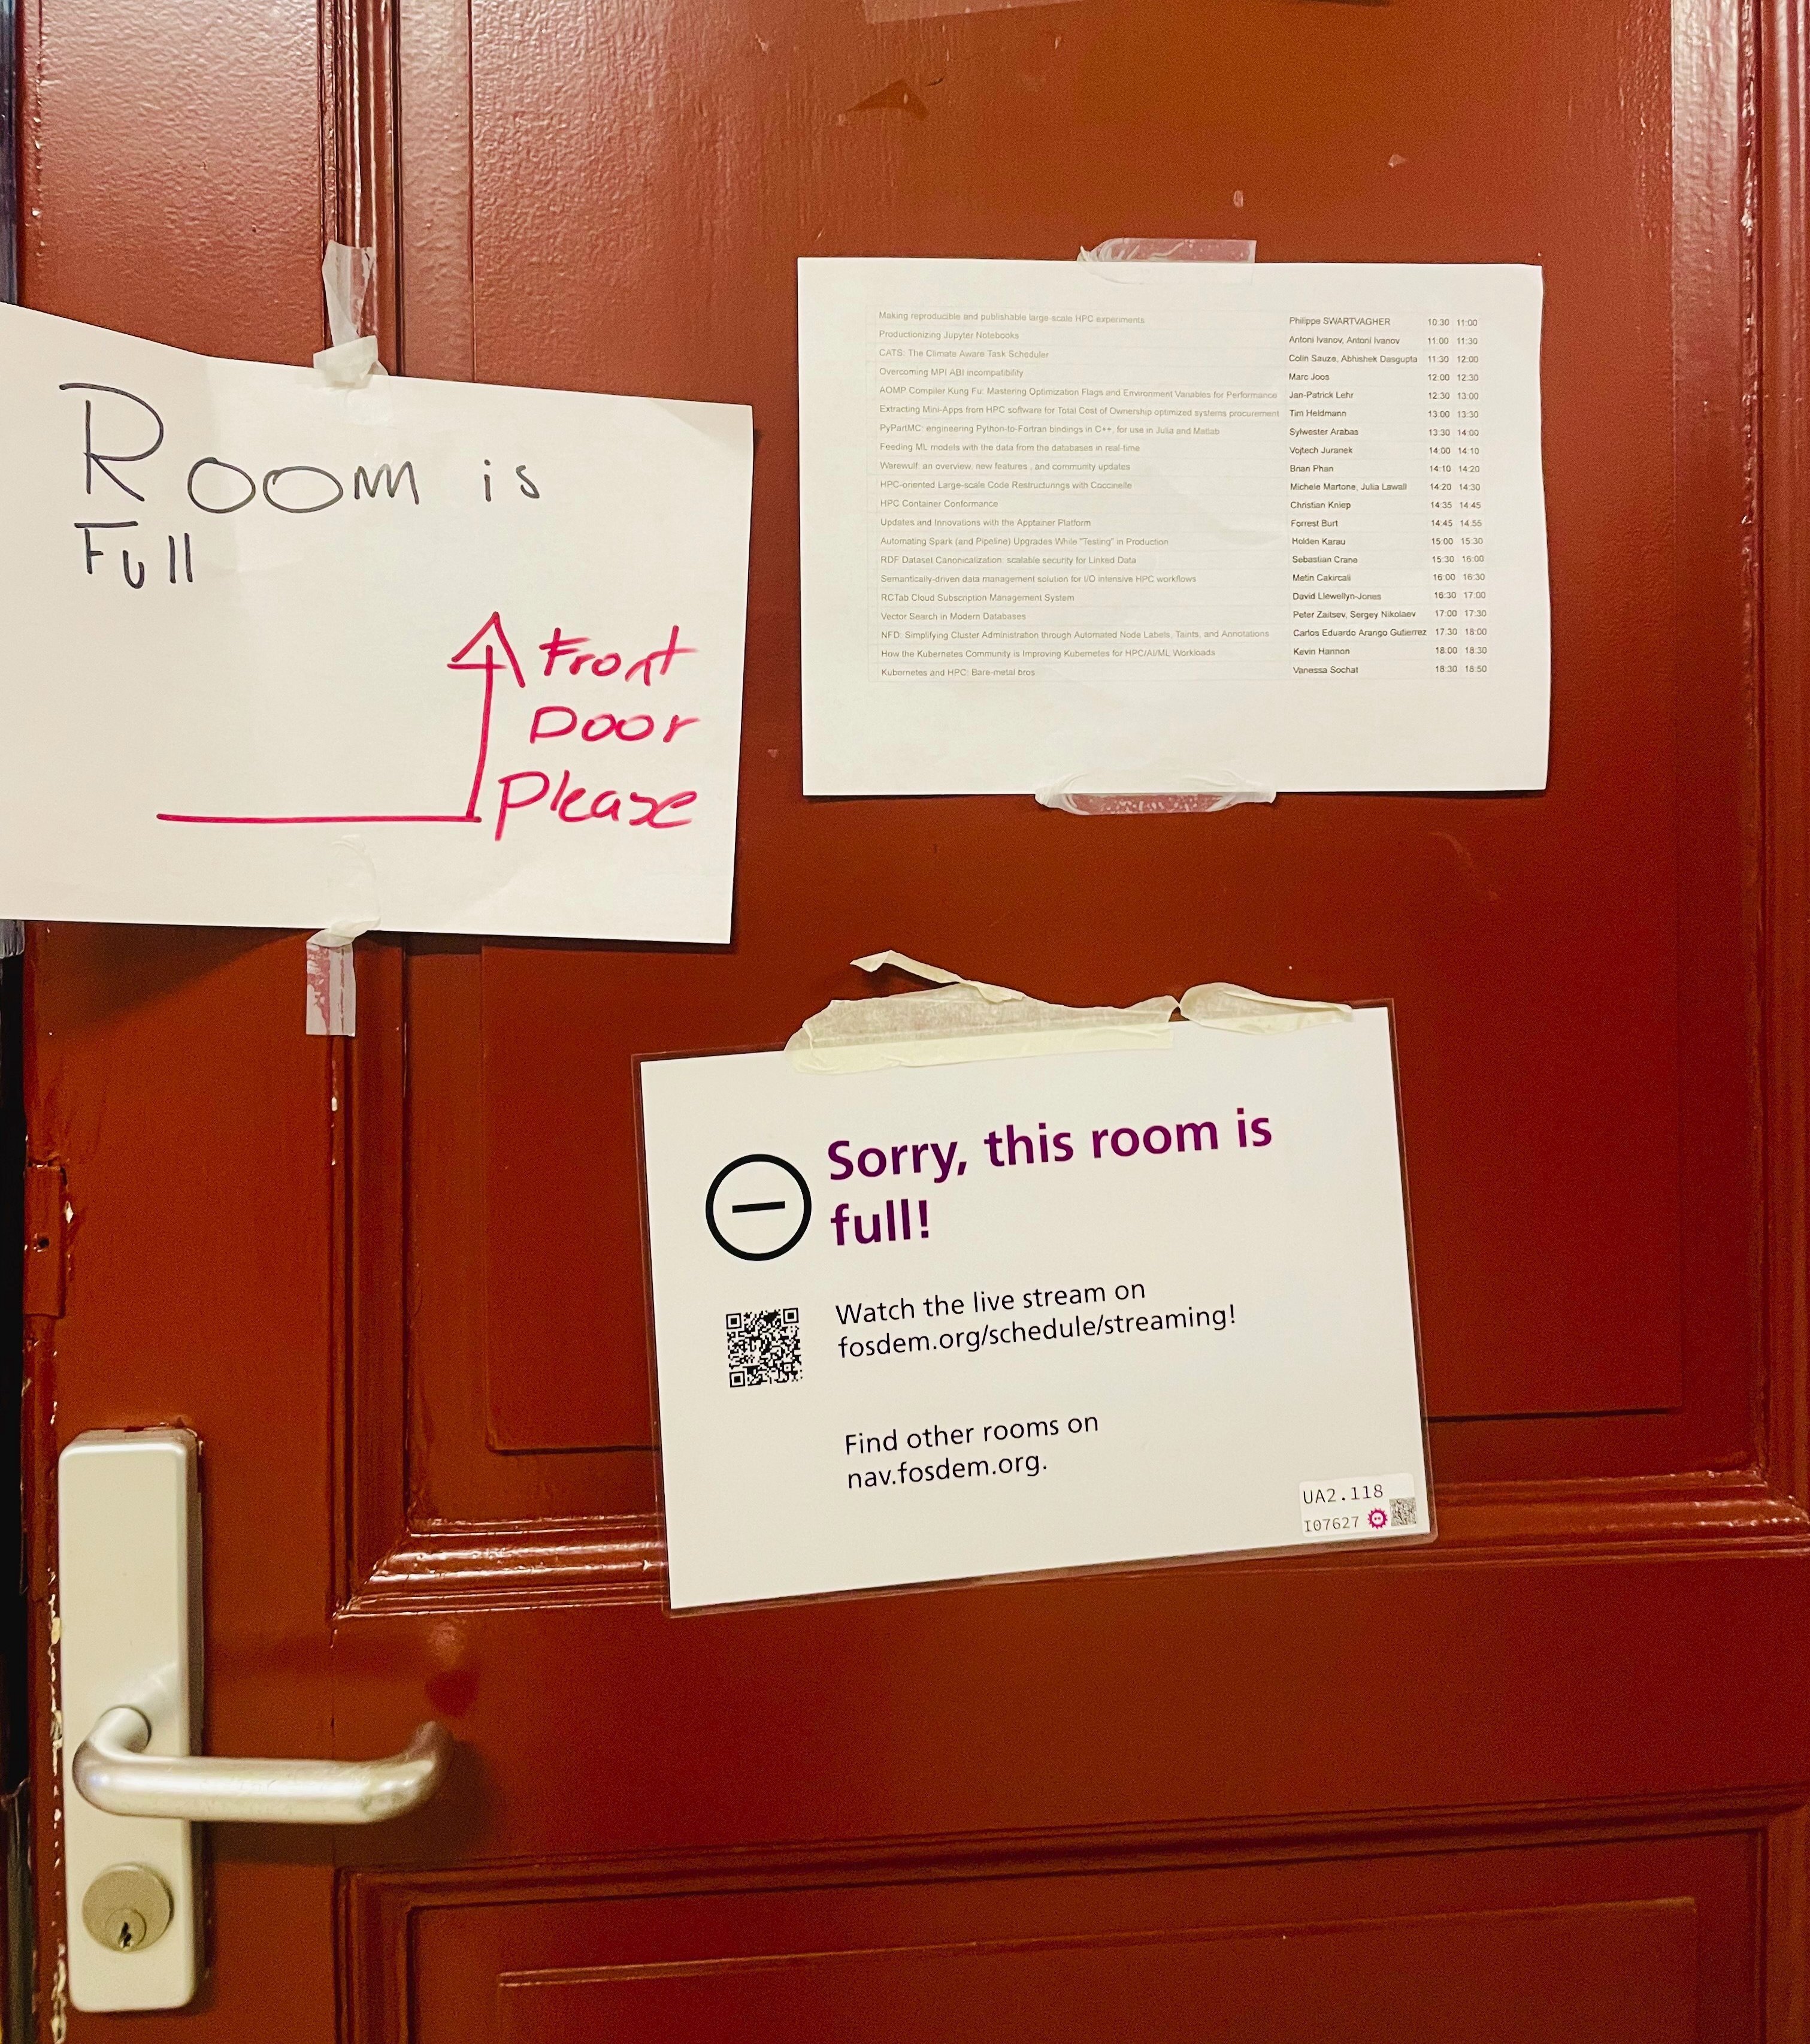 Room is
Full
Front
Door
Please
Making reproducible and publishable large-scale HPC experiments Philippe SWARTVAGHER 10:30 11:00
Productionizing Jupyter Notebooks Antoni Ivanov, Antoni Ivanov 11:00 11:30
CATS: The Climate Aware Task Scheduler Colin Sauze, Abhishek Dasgupta 11:30 12:00
Overcoming MPI ABI incompatibility Marc Joos 12:00 12:30
AOMP Compiler Kung Fu: Mastering Optimization Flags and Environment Variables for Performance Jan-Patrick Lehr 12:30 13:00
Extracting Mini-Apps from HPC software for Total Cost of Ownership optimized systems procurement Tim Heldmann 13:00 13:30
PyPartMC: engineering Python-to-Fortran bindings in C++, for use in Julia and Matlab Sylwester Arabas 13:30 14:00
Feeding ML models with the data from the databases in real-time Vojtech Juranek 14:00 14:10
Warewulf: an overview, new features , and community updates Brian Phan 14:10 14:20
HPC-oriented Large-scale Code Restructurings with Coccinelle Michele Martone, Julia Lawall 14:20 14:30
HPC Container Conformance Christian Kniep 14:35 14:45
Updates and Innovations with the Apptainer Platform Forrest Burt 14:45 14:55
Automating Spark (and Pipeline) Upgrades While "Testing" in Production Holden Karau 15:00 15:30
RDF Dataset Canonicalization: scalable security for Linked Data Sebastian Crane 15:30 16:00
Semantically-driven data management solution for I/O intensive HPC workflows Metin Cakircali 16:00 16:30
RCTab Cloud Subscription Management System David Llewellyn-Jones 16:30 17:00
Vector Search in Modern Databases Peter Zaitsev, Sergey Nikolaev 17:00 17:30
NFD: Simplifying Cluster Administration through Automated Node Labels, Taints, and Annotations Carlos Eduardo Arango Gutierrez 17:30 18:00
How the Kubernetes Community is Improving Kubernetes for HPC/AI/ML Workloads Kevin Hannon 18:00 18:30
Kubernetes and HPC: Bare-metal bros Vanessa Sochat 18:30 18:50
Sorry, this room is
full!
Watch the live stream on
fosdem.org/schedule/streaming!
Find other rooms on
nav.fosdem.org.
UA2.118
I07627